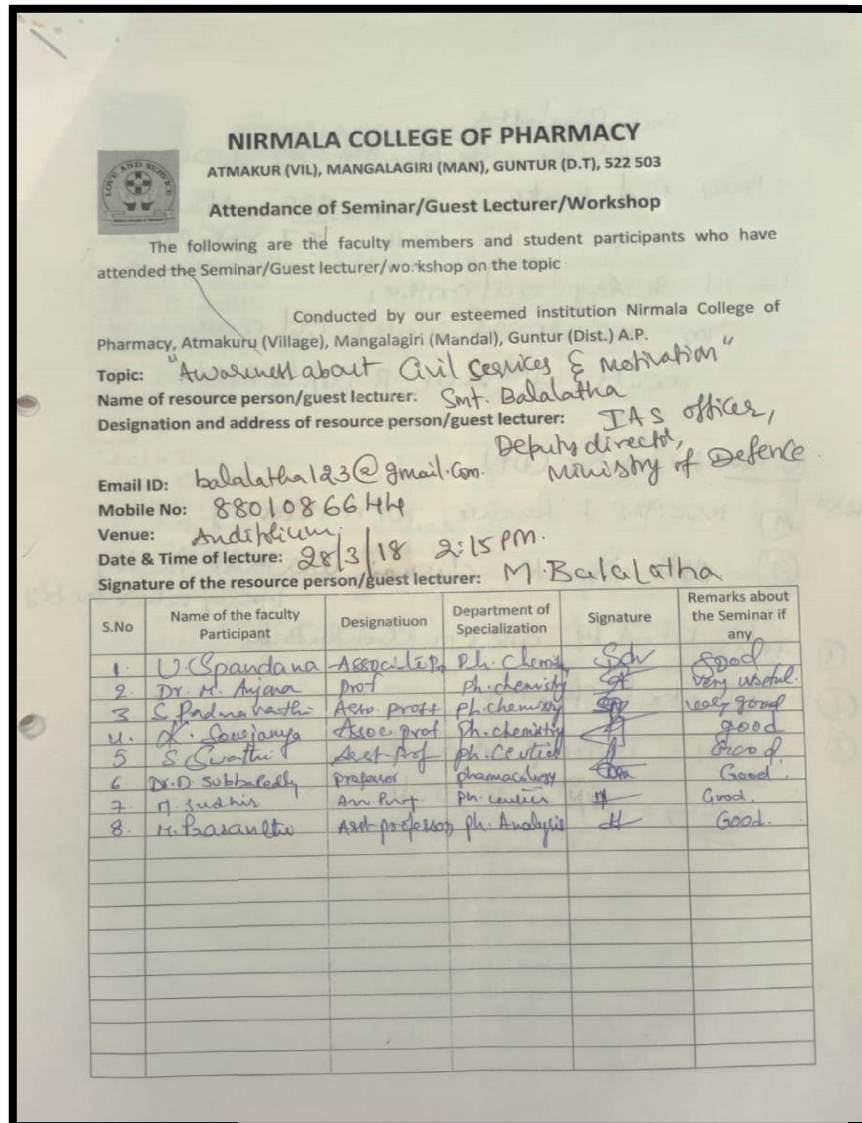 NIRMALA COLLEGE OF PHARMACY
ATMAKUR (VIL), MANGALAGIRI (MAN), GUNTUR (D.T), 522 503
LOVE AND SERVICE
Attendance of Seminar/Guest Lecturer/Workshop
The following are the faculty members and student participants who have
attended the Seminar/Guest lecturer/workshop on the topic
Conducted by our esteemed institution Nirmala College of
Pharmacy, Atmakuru (Village), Mangalagiri (Mandal), Guntur (Dist.) A.P.
Topic: "Awareness about Civil Services & motivation"
Name of resource person/guest lecturer: Smt. Balalatha
Designation and address of resource person/guest lecturer: IAS officer,
Deputy director,
Ministry of Defence.
Email ID: balalatha123@gmail.com.
Mobile No: 8801086644
Venue: Auditorium.
Date & Time of lecture: 28/3/18 2:15 PM.
Signature of the resource person/guest lecturer: M.Balalatha
S.No Name of the faculty Participant Designatiuon Department of Specialization Signature Remarks about the Seminar if any
1. U. Spandana Ph. Chemis good
2. Dr. M. Anjana prof ph.chemistry very useful.
3 S. Padmavathi ph.chemistry very good
4. K. Sowjanya Assoc. prof Ph.chemistry good
5 S Swathi Asst prof ph.Ceutics Good
6 Dr.D. Subbareddy professor pharmacology Good.
7. M. Sudhir Ph. ceutics Good.
8. M. Prasanthi Asst-professor ph. Analysis Good.